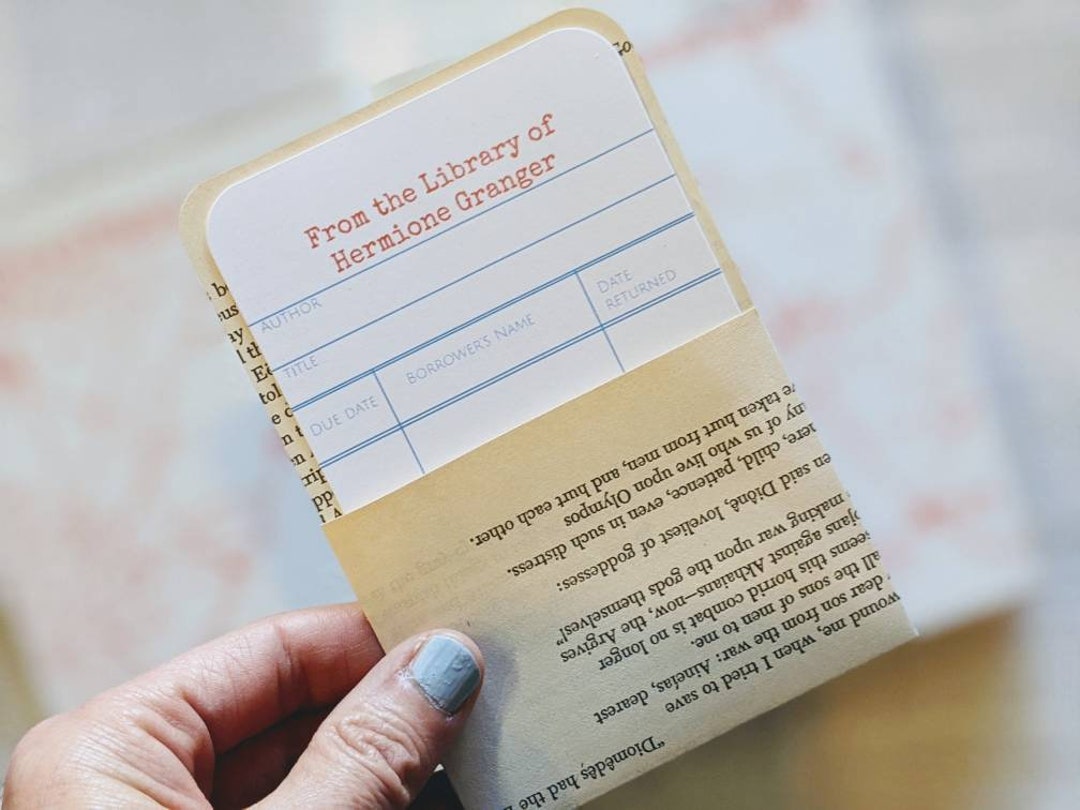 From the Library of
Hermione Granger
AUTHOR
TITLE
DUE DATE
BORROWER'S NAME
DATE
RETURNED
"Diomêdês had the
wound me, when I tried to save
dear son from the war: Aineías, dearest
all the sons of men to me.
seems this horrid combat is no longer
ojans against Akhaians—now, the Argives
making war upon the gods themselves!"
en said Diônê, loveliest of goddesses:
here, child, patience, even in such distress.
ny of us who live upon Olympos
ve taken hurt from men, and hurt each other.